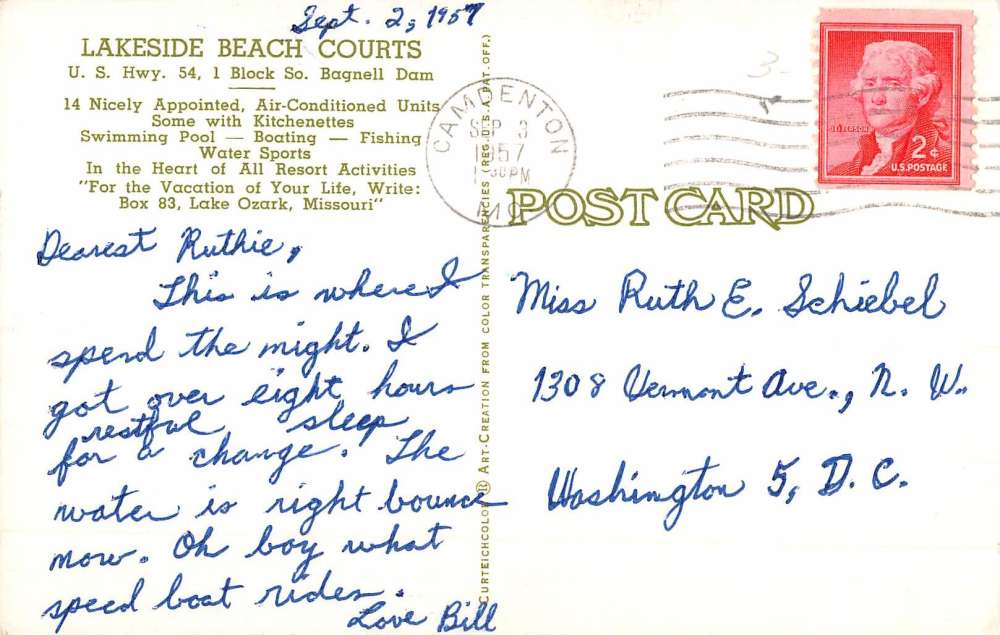 Sept. 2, 1957
LAKESIDE BEACH COURTS
U. S. Hwy. 54, 1 Block So. Bagnell Dam
14 Nicely Appointed, Air-Conditioned Units
Some with Kitchenettes
Swimming Pool — Boating — Fishing
Water Sports
In the Heart of All Resort Activities
"For the Vacation of Your Life, Write:
Box 83, Lake Ozark, Missouri"
Dearest Ruthie,
This is where I
spend the night. I
got over eight hours
restful sleep
for a change. The
water is right bounce
now. Oh boy what
speed boat rides.
Love Bill
CURTEICHCOLOR ® ART-CREATION FROM COLOR TRANSPARENCIES (REG. U.S.A. PAT. OFF.)
CAMDENTON
SEP 3
1957
PM
MO
POST CARD
JEFFERSON
2¢
U.S. POSTAGE
3-
Miss Ruth E. Schiebel
1308 Vermont Ave., N. W.
Washington 5, D. C.